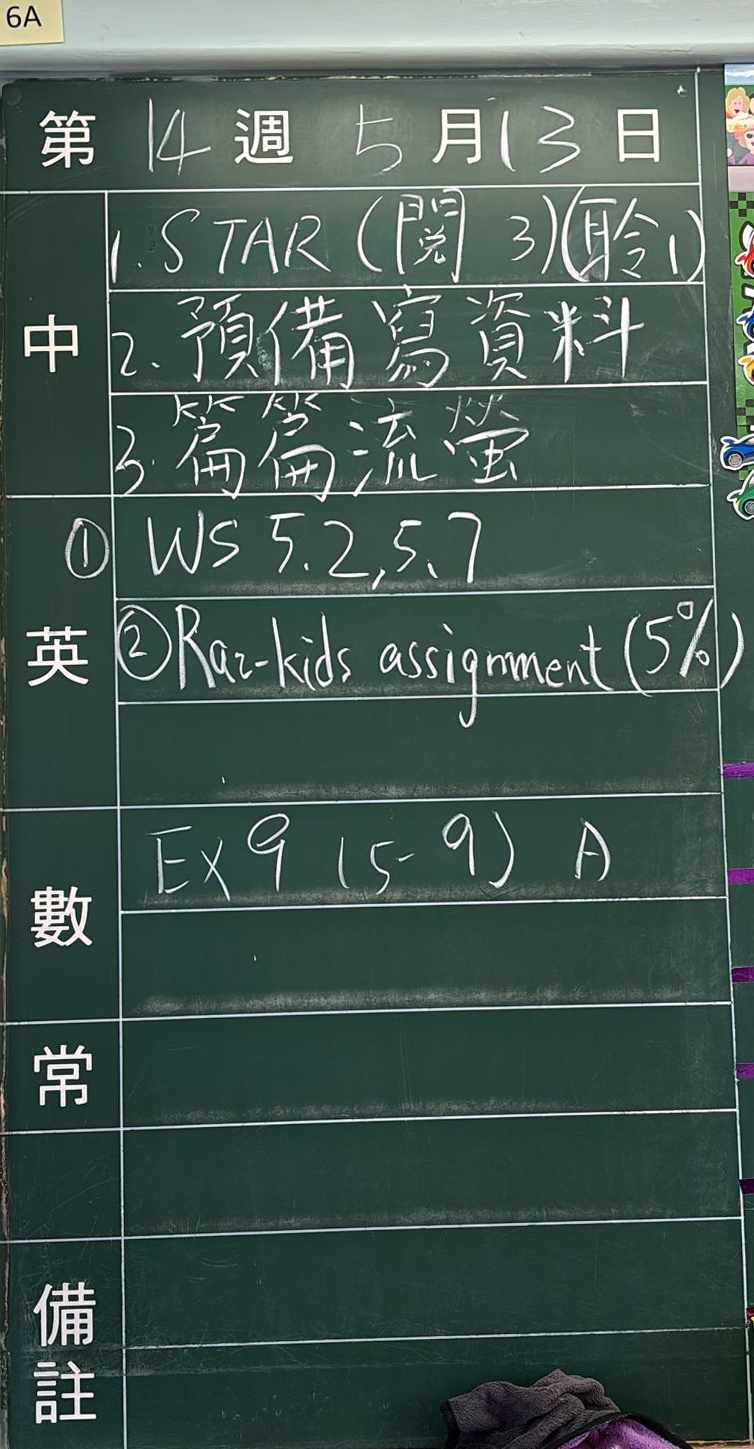 6A
第 14 週 5 月 13 日
中
1. STAR (閱 3)(聆 1)
2. 預備寫資料
3. 篇篇流螢
英
① WS 5.2, 5.7
② Raz-kids assignment (5%)
數
Ex 9 (5-9) A
常
備註